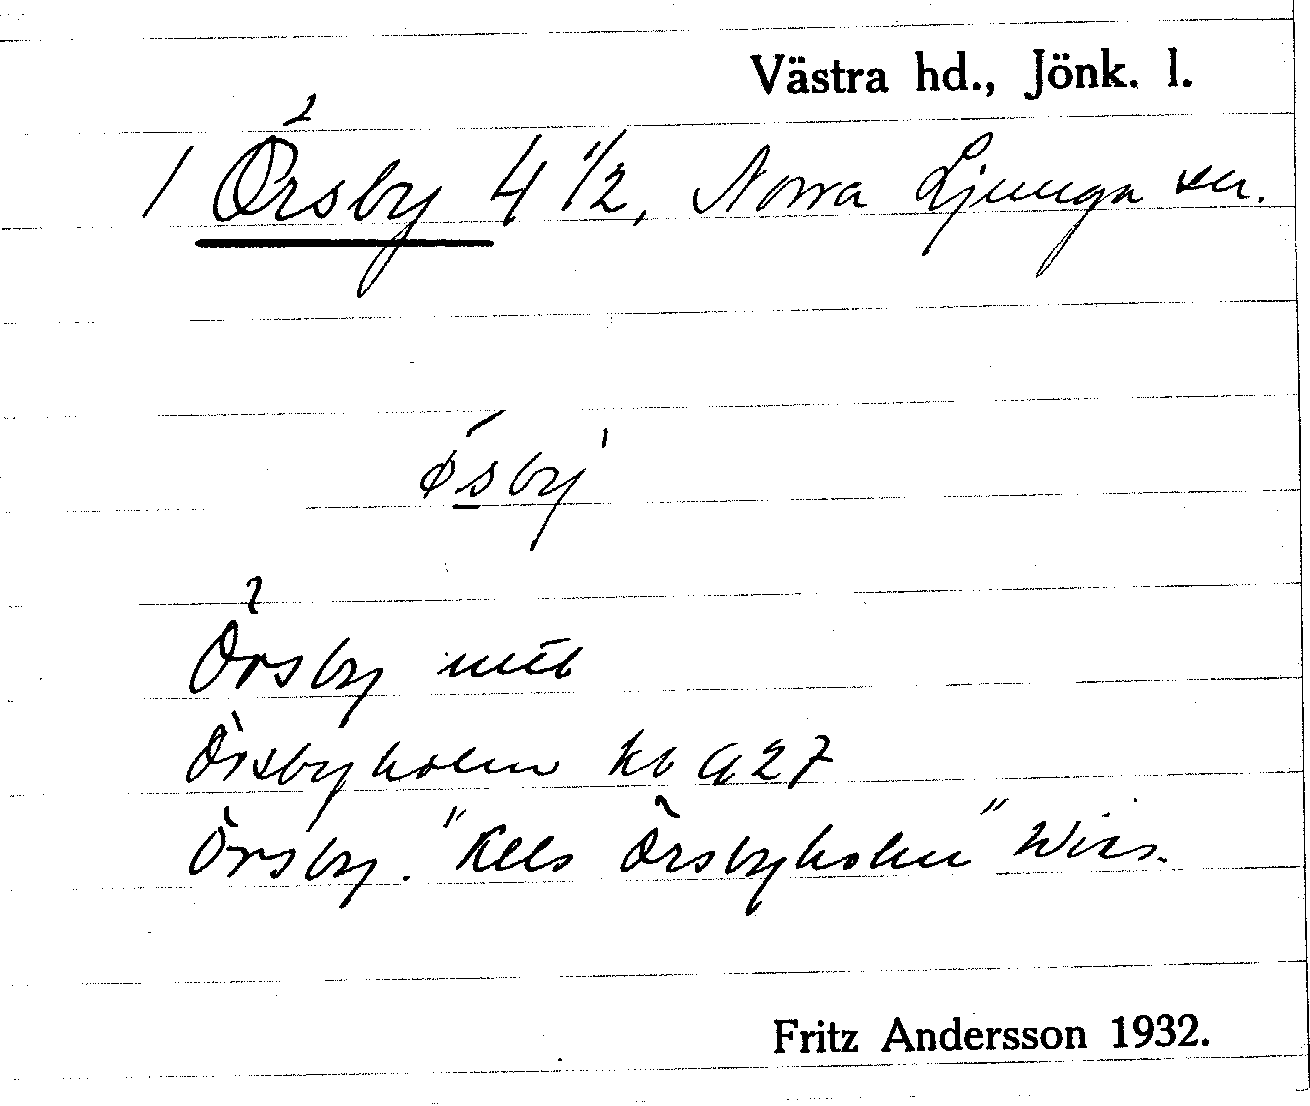 Västra hd., Jönk. l.
1 Örsby 4 1/2, Norra Ljunga sn.
ǿsby'
Örsby mtb
Örsbyholm kb G 27
Örsby. "Kells Örsbyholm" Wies.
Fritz Andersson 1932.